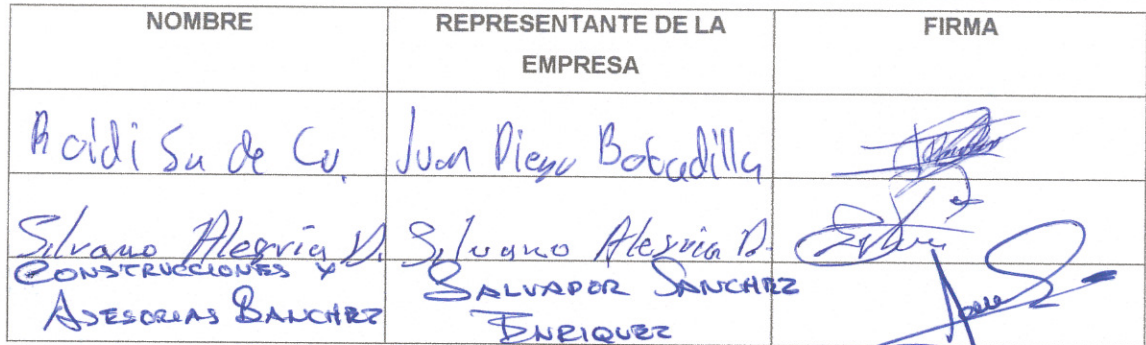 NOMBRE REPRESENTANTE DE LA EMPRESA FIRMA
Roidi Sa de Cv. Juan Diego Bobadilla
Silvano Alegria D. Silvano Alegria D.
CONSTRUCCIONES Y SALVADOR SANCHEZ
ASESORIAS BANCHEZ ENRIQUEZ